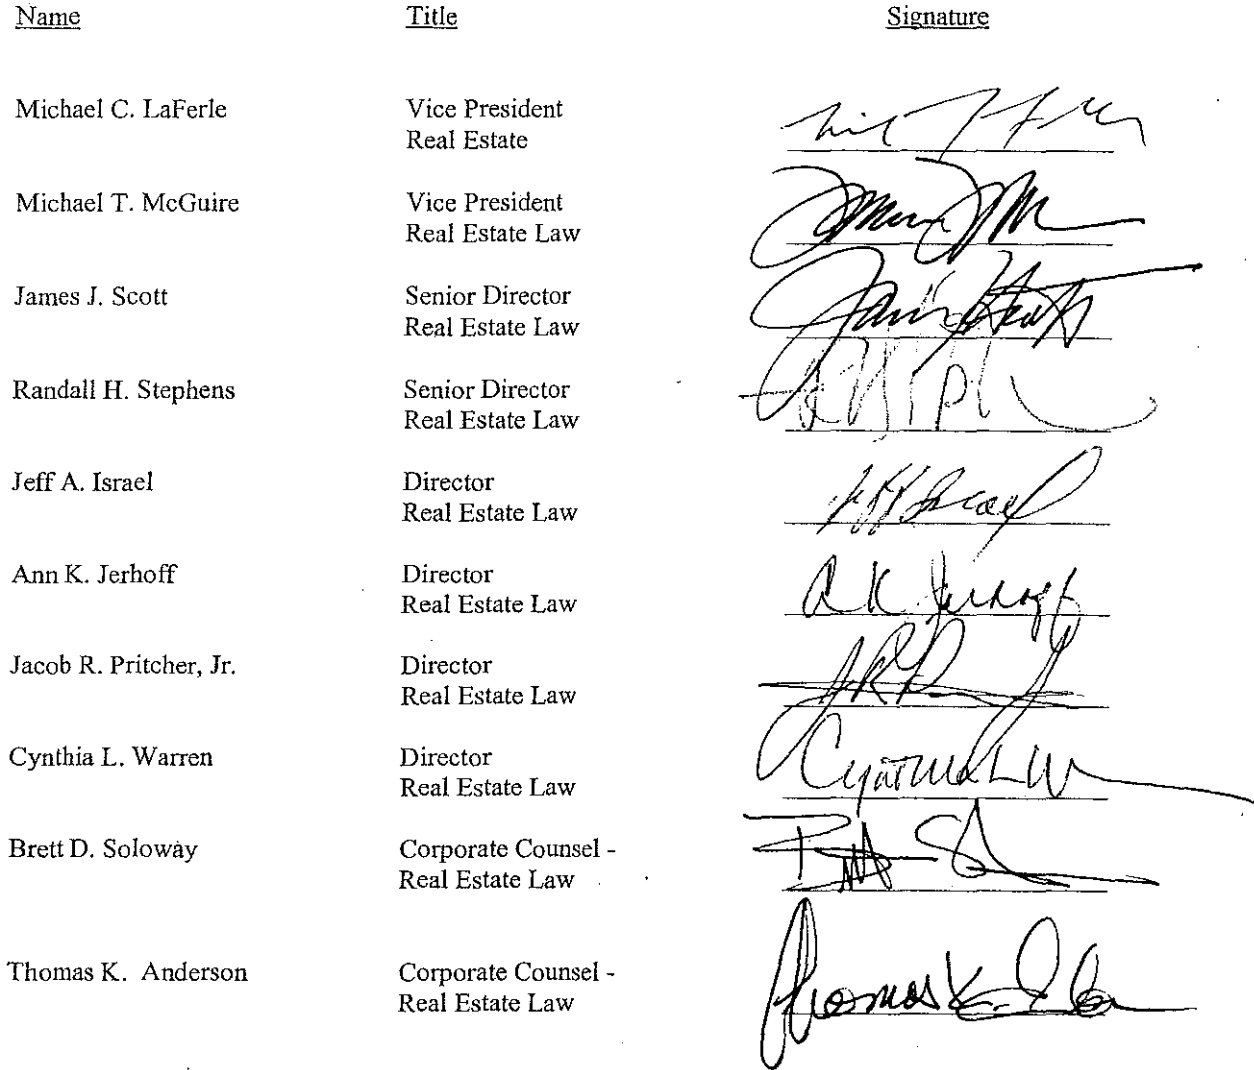 Name Title Signature
Michael C. LaFerle Vice President
Real Estate
Michael T. McGuire Vice President
Real Estate Law
James J. Scott Senior Director
Real Estate Law
Randall H. Stephens Senior Director
Real Estate Law
Jeff A. Israel Director
Real Estate Law
Ann K. Jerhoff Director
Real Estate Law
Jacob R. Pritcher, Jr. Director
Real Estate Law
Cynthia L. Warren Director
Real Estate Law
Brett D. Soloway Corporate Counsel -
Real Estate Law
Thomas K. Anderson Corporate Counsel -
Real Estate Law